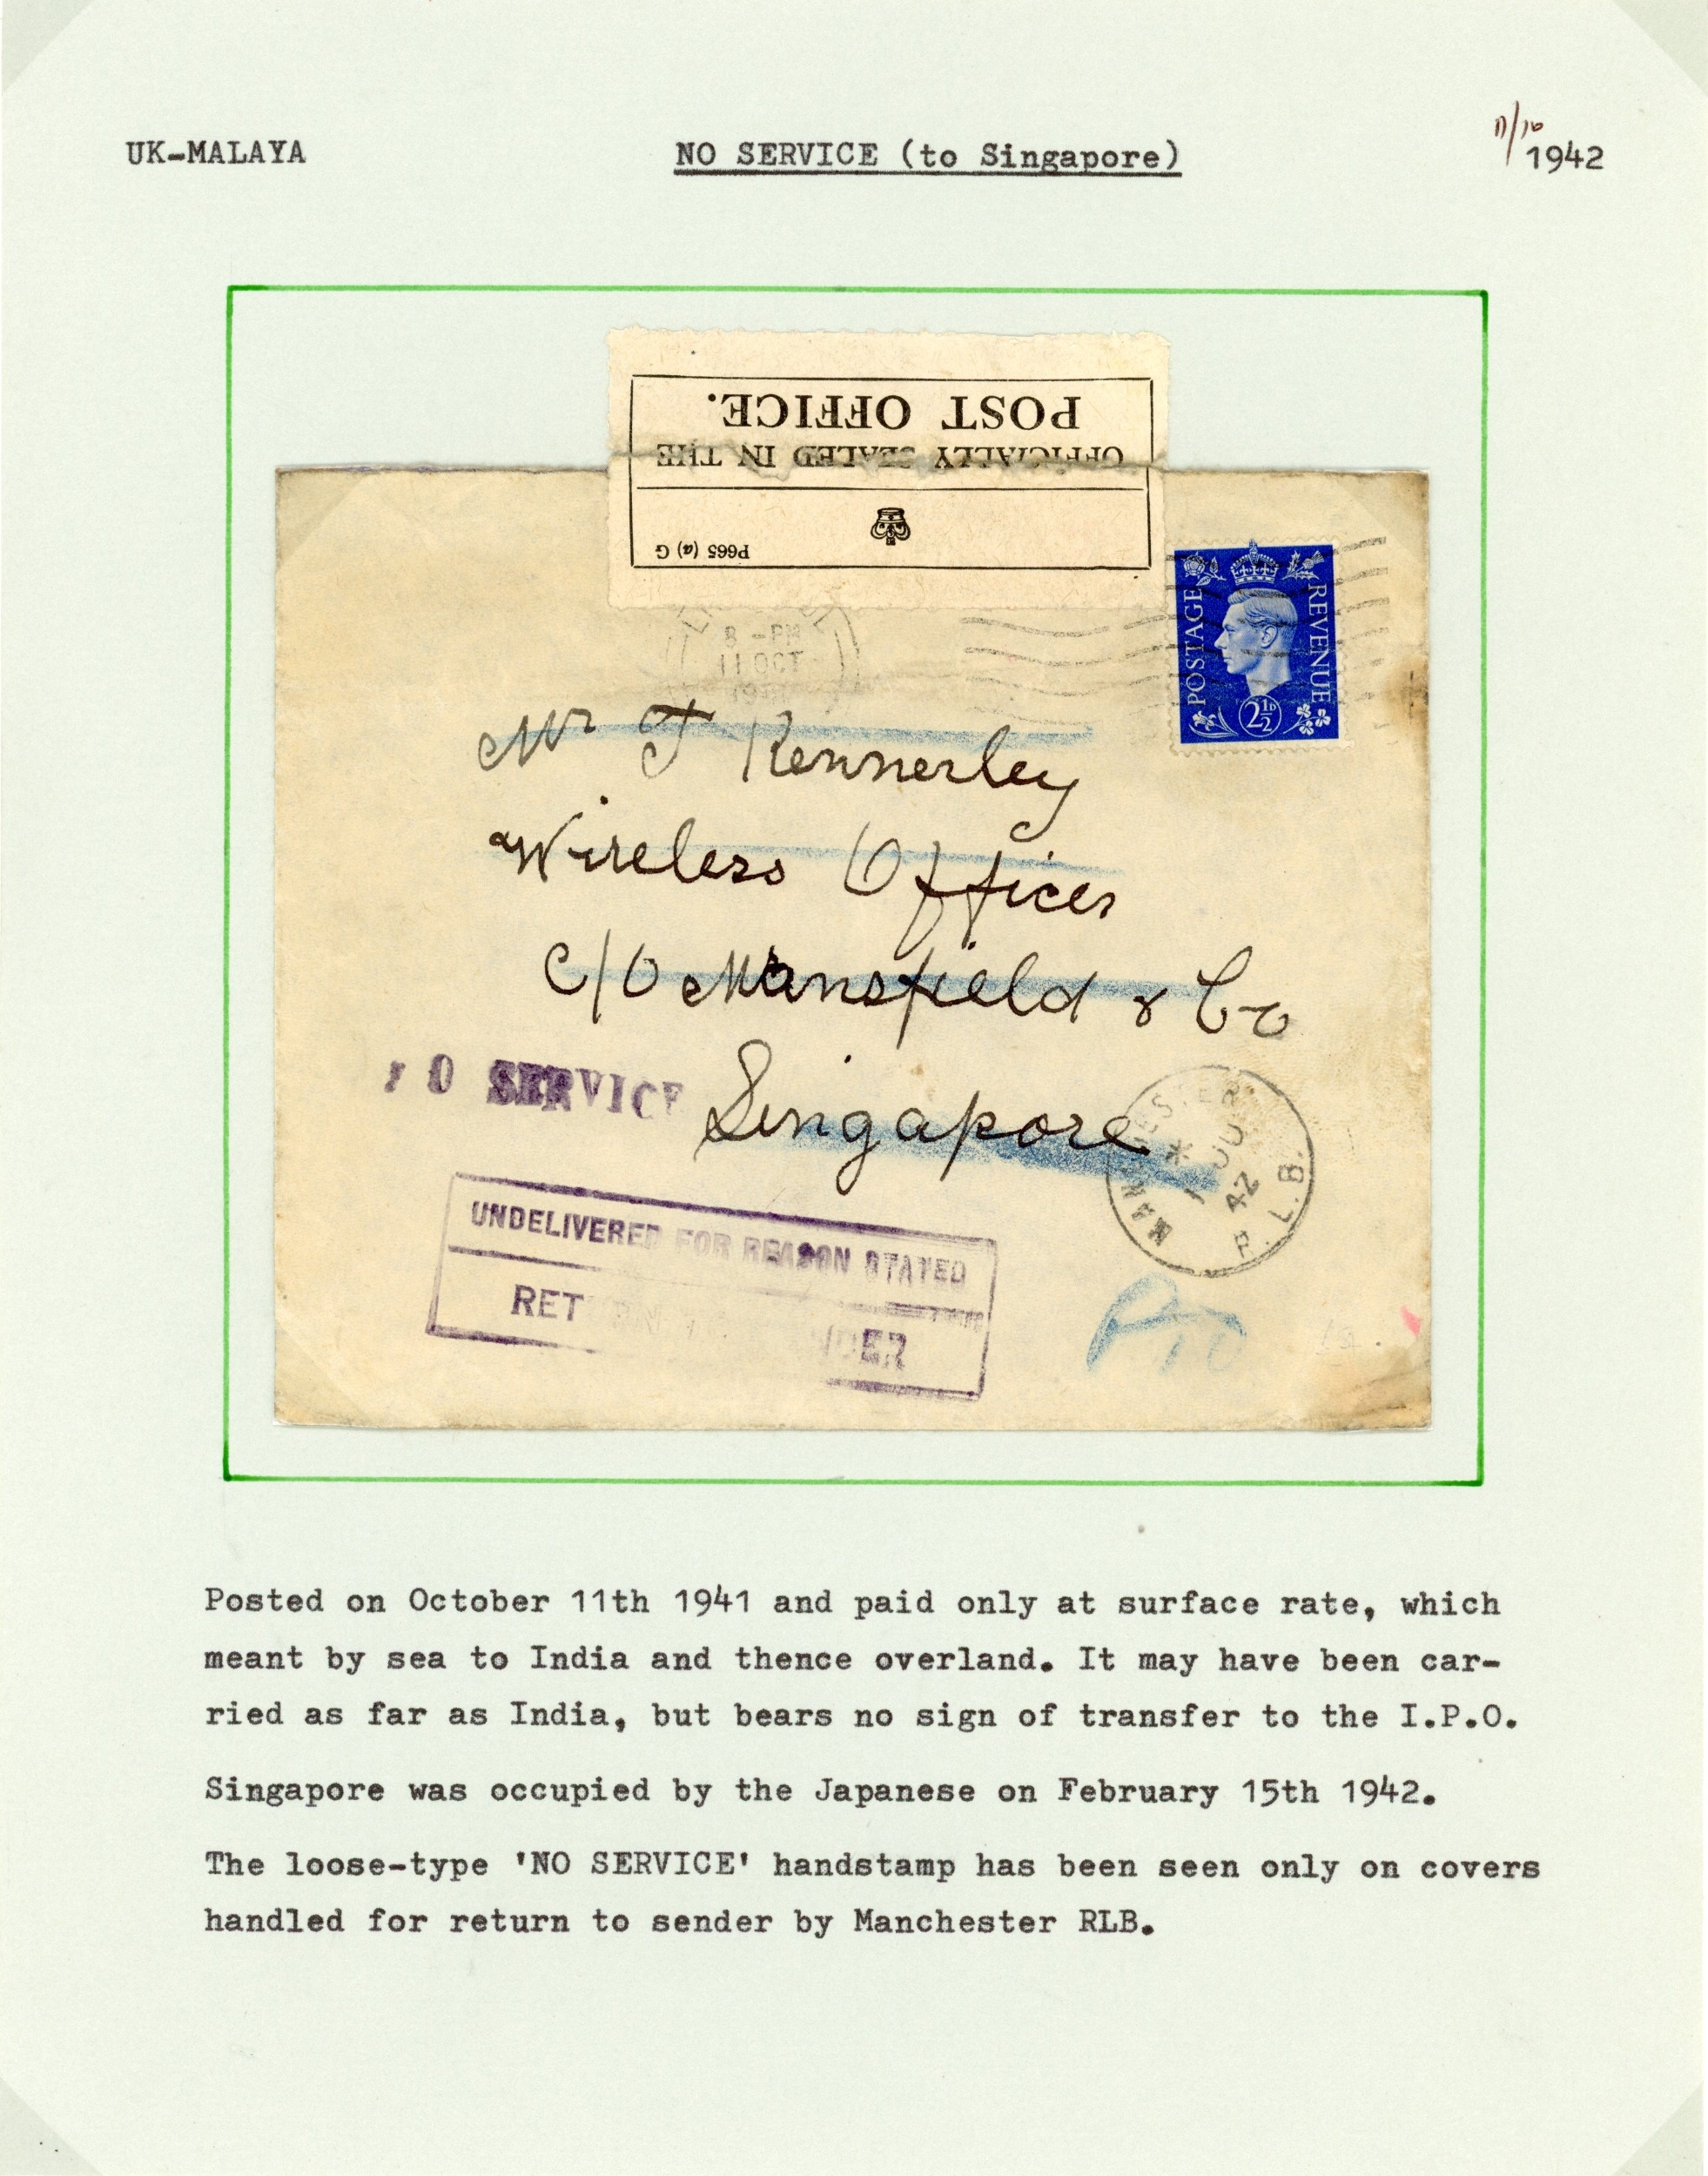 UK-MALAYA
NO SERVICE (to Singapore)
11/10
1942
OFFICIALLY SEALED IN THE
POST OFFICE.
P665 (a) G
POSTAGE
REVENUE
2½D
8 -PM
11 OCT
Mr J Kennerley
Wireless Officer
C/O Mansfield & Co
Singapore
NO SERVICE
MANCHESTER
42
R.L.B.
UNDELIVERED FOR REASON STATED
RETURN TO SENDER
Posted on October 11th 1941 and paid only at surface rate, which
meant by sea to India and thence overland. It may have been car-
ried as far as India, but bears no sign of transfer to the I.P.O.
Singapore was occupied by the Japanese on February 15th 1942.
The loose-type 'NO SERVICE' handstamp has been seen only on covers
handled for return to sender by Manchester RLB.